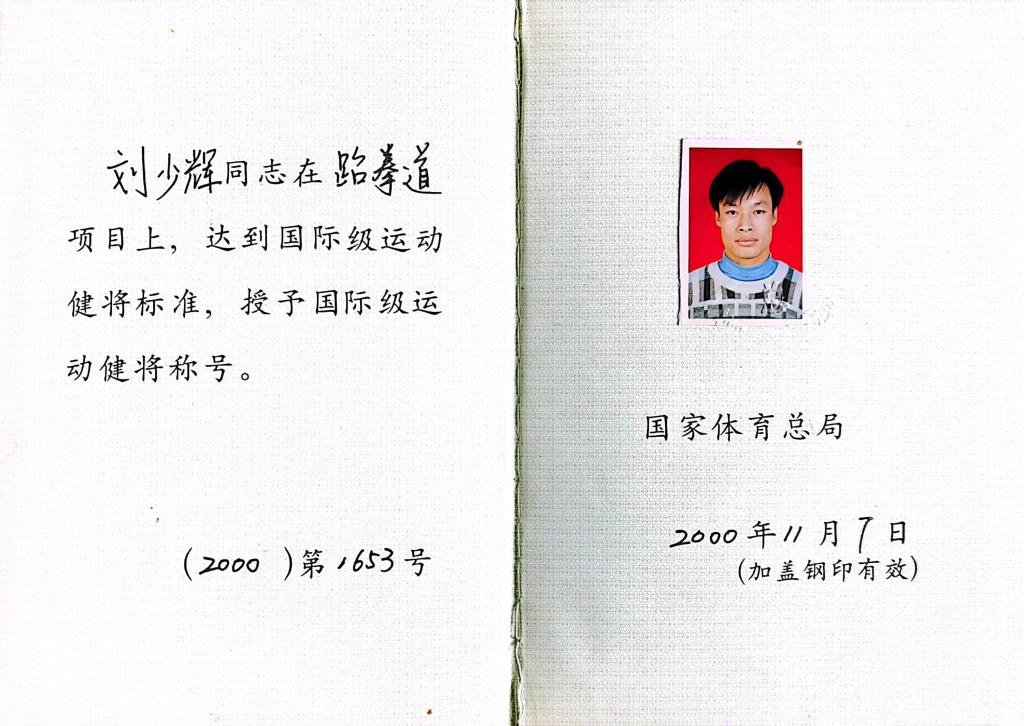 刘少辉同志在跆拳道
项目上，达到国际级运动
健将标准，授予国际级运
动健将称号。
(2000 )第1653号
国家体育总局
2000年11月7日
(加盖钢印有效)